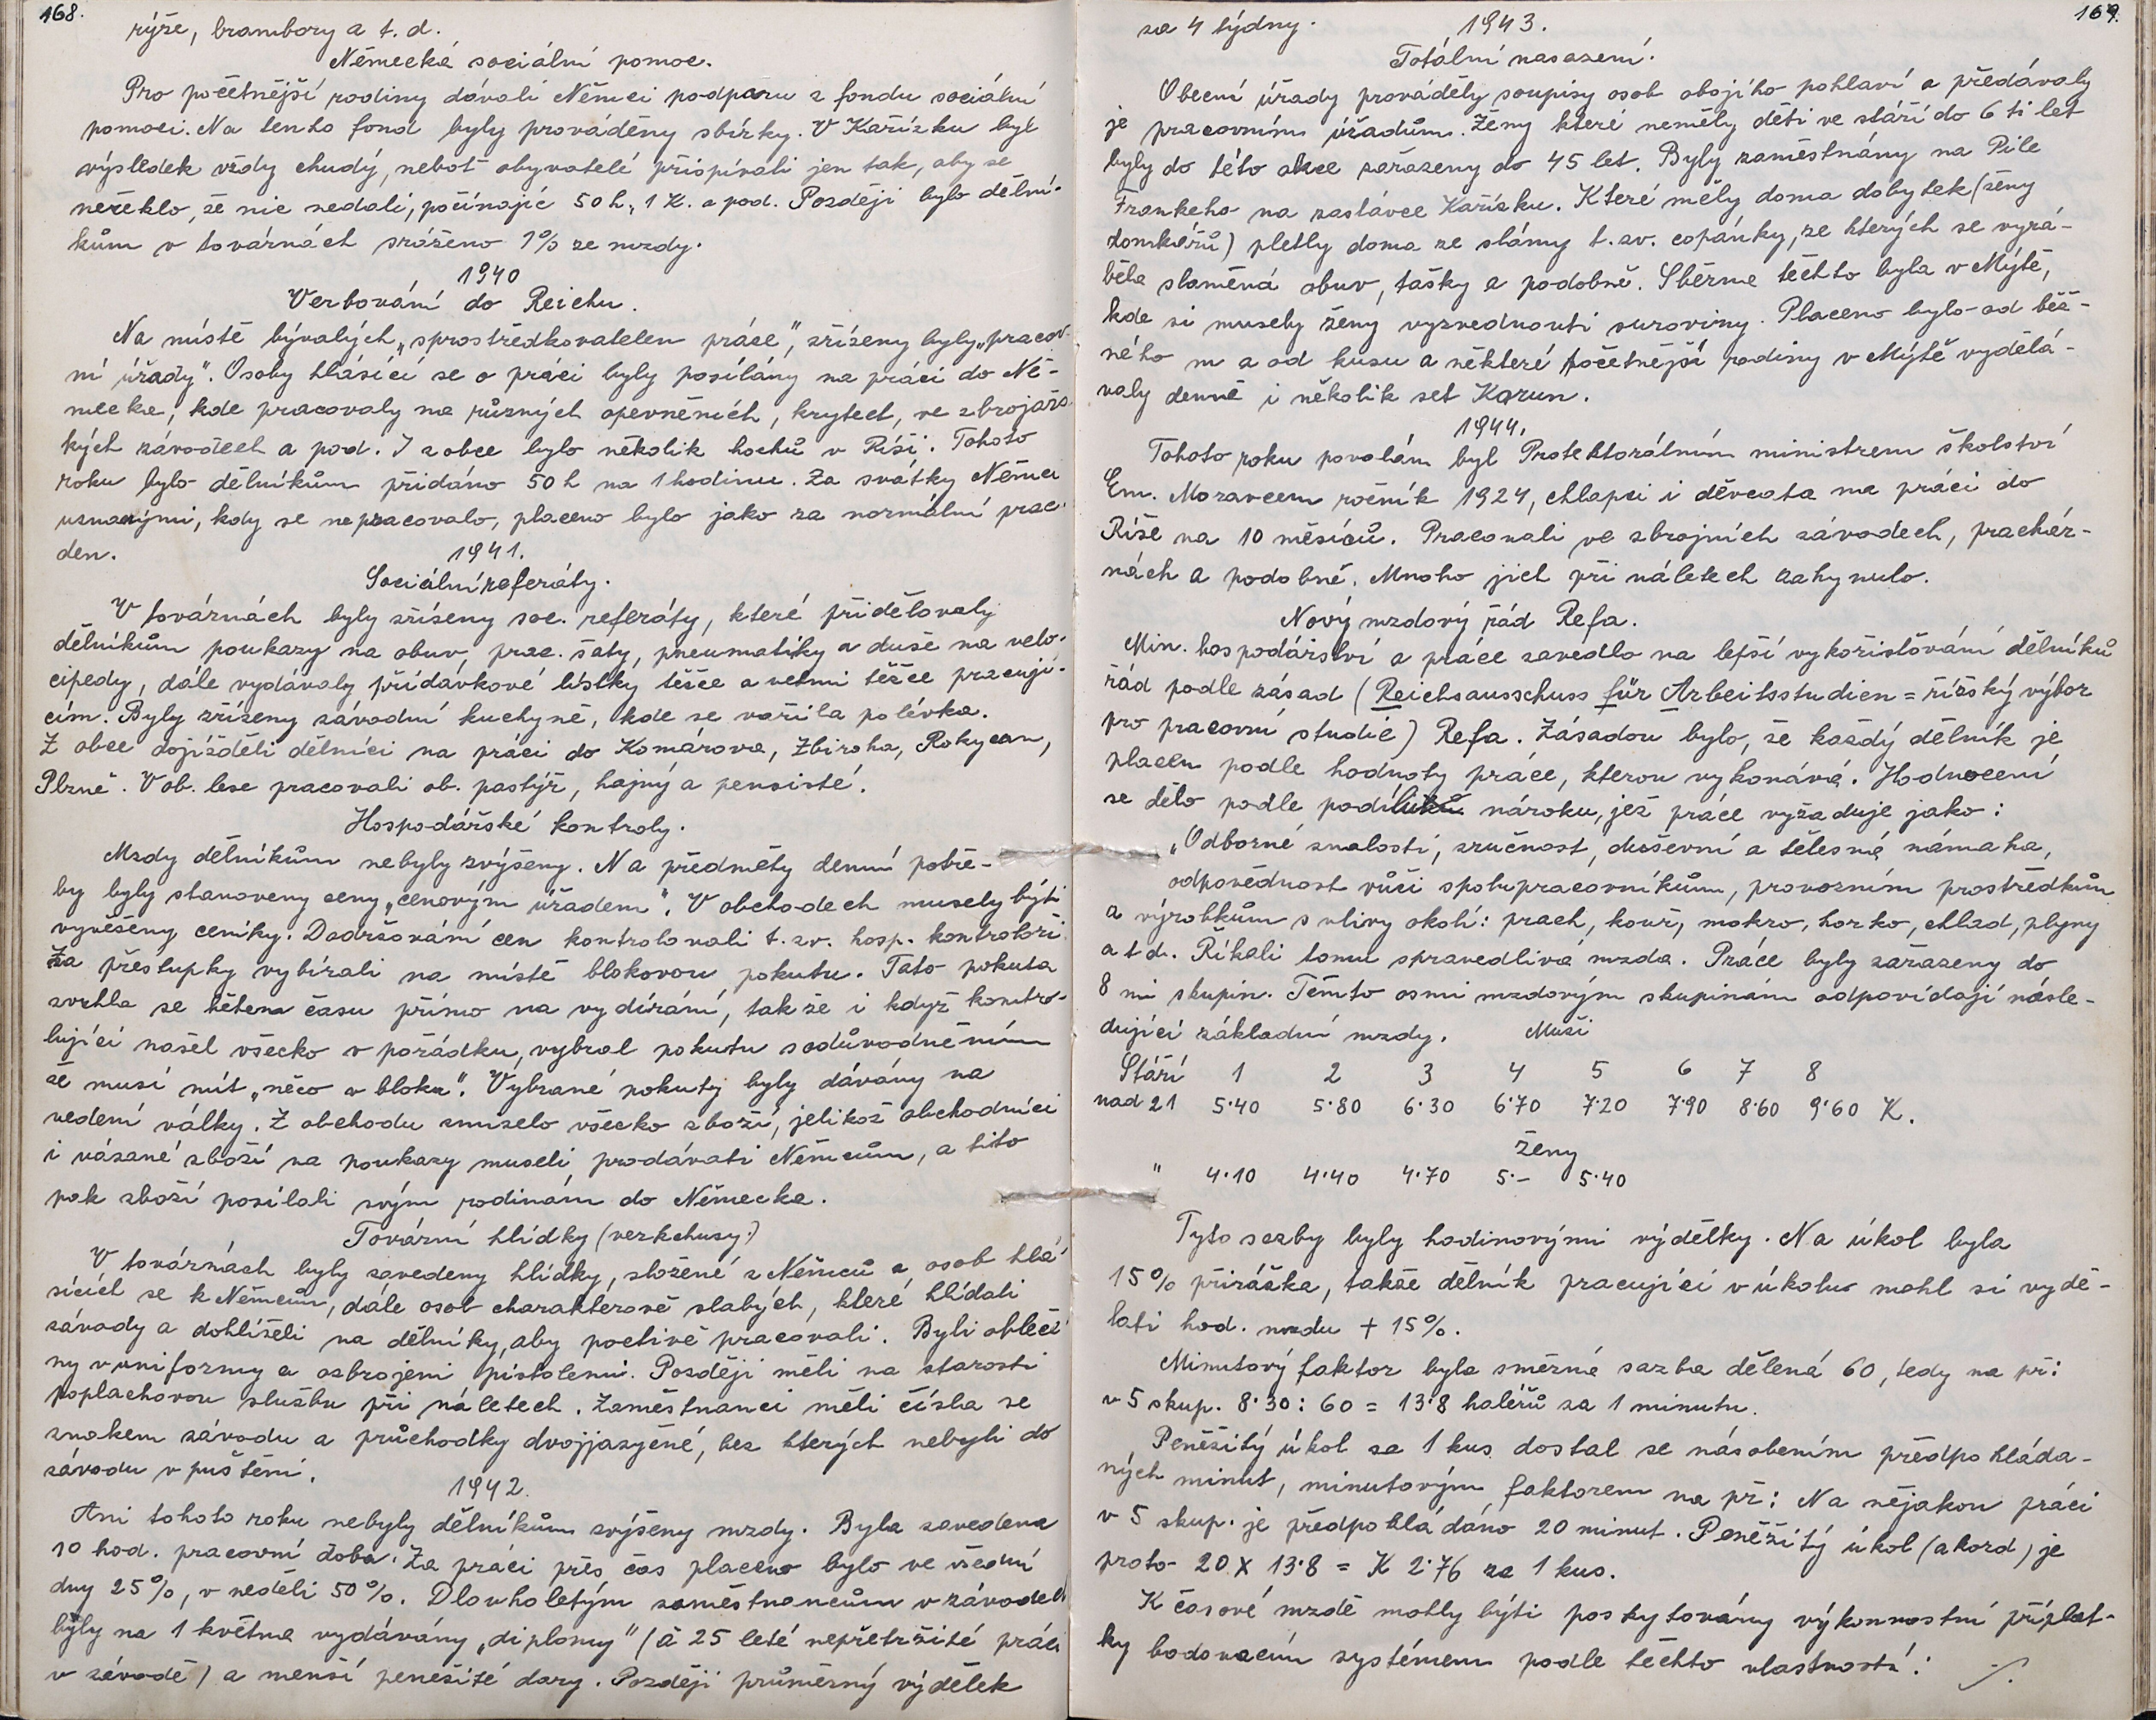 168.
rýže, brambory a t. d.
Německá sociální pomoc.
Pro početnější rodiny dávali Němci podporu z fondu sociální
pomoci. Na tento fond byly prováděny sbírky. V Kařízku byl
výsledek vždy chudý, neboť obyvatelé přispívali jen tak, aby se
neřeklo, že nic nedali, počínajíc 50 h, 1 K. a pod. Později bylo dělní-
kům v továrnách sráženo 1% ze mzdy.
1940
Verbování do Reichu.
Na místě bývalých „sprostředkovatelen práce", zřízeny byly „pracov-
ní úřady". Osoby hlásící se o práci byly posílány na práci do Ně-
mecka, kde pracovaly na různých opevněních, krytech, ve zbrojařs-
kých závodech a pod. I z obce bylo několik hochů v Říši. Tohoto
roku bylo dělníkům přidáno 50 h na 1 hodinu. Za svátky Němci
uznanými, kdy se nepracovalo, placeno bylo jako za normální prac.
den.
1941.
Sociální referáty.
V továrnách byly zřízeny soc. referáty, které přidělovaly
dělníkům poukazy na obuv, prac. šaty, pneumatiky a duše na velo-
cipedy, dále vydávaly přídavkové lístky těžce a velmi těžce pracují-
cím. Byly zřízeny závodní kuchyně, kde se vařila polévka.
Z obce dojížděli dělníci na práci do Komárova, Zbiroha, Rokycan,
Plzně. V ob. lese pracovali ob. pastýř, hajný a pensisté.
Hospodářské kontroly.
Mzdy dělníkům nebyly zvýšeny. Na předměty denní potře-
by byly stanoveny ceny „cenovým úřadem". V obchodech musely býti
vyvěšeny ceníky. Dodržování cen kontrolovali t. zv. hosp. kontroloři.
Za přestupky vybírali na místě blokovou pokutu. Tato pokuta
zvrhla se během času přímo na vydírání, takže i když kontro-
lující našel všecko v pořádku, vybral pokutu s odůvodněním
že musí mít „něco v bloku". Vybrané pokuty byly dávány na
vedení války. Z obchodu zmizelo všecko zboží, jelikož obchodníci
i vázané zboží na poukazy museli prodávati Němcům, a tito
pak zboží posílali svým rodinám do Německa.
Tovární hlídky (verkchusy.)
V továrnách byly zavedeny hlídky, složené z Němců a osob hlá-
sících se k Němcům, dále osob charakterově slabých, které hlídali
závody a dohlíželi na dělníky, aby poctivě pracovali. Byli obleče-
ny v uniformy a ozbrojeni pistolemi. Později měli na starosti
poplachovou službu při náletech. Zaměstnanci měli čísla se
znakem závodu a průchodky dvojjazyčné, bez kterých nebyli do
závodu vpuštěni.
1942.
Ani tohoto roku nebyly dělníkům zvýšeny mzdy. Byla zavedena
10 hod. pracovní doba. Za práci přes čas placeno bylo ve všední
dny 25%, v neděli 50%. Dlouholetým zaměstnancům v závodech
byly na 1 května vydávány „diplomy" (à 25 leté nepřetržité práci
v závodě) a menší peněžité dary. Později průměrný výdělek
169.
za 4 týdny.
1943.
Totální nasazení.
Obecní úřady prováděly soupisy osob obojího pohlaví a předávaly
je pracovním úřadům. Ženy které neměly děti ve stáří do 6 ti let
byly do této akce zařazeny do 45 let. Byly zaměstnány na Pile
Frankeho na zastávce Kařízku. Které měly doma dobytek (ženy
domkářů) pletly doma ze slámy t. zv. copánky, ze kterých se vyrá-
běla slaměná obuv, tašky a podobně. Sběrna těchto byla v Mýtě,
kde si musely ženy vyzvednouti suroviny. Placeno bylo od běž-
ného m a od kusu a některé početnější rodiny v Mýtě vydělá-
valy denně i několik set Korun.
1944.
Tohoto roku povolám byl Protektorálním ministrem školství
Em. Moravcem ročník 1924, chlapci i děvčata na práci do
Říše na 10 měsíců. Pracovali ve zbrojních závodech, prachár-
nách a podobně. Mnoho jich při náletech zahynulo.
Nový mzdový řád Refa.
Min. hospodářství a práce zavedlo na lepší vykořisťování dělníků
řád podle zásad (Reichsausschuss für Arbeitsstudien = říšský výbor
pro pracovní studie) Refa. Zásadou bylo, že každý dělník je
placen podle hodnoty práce, kterou vykonává. Hodnocení
se dělo podle podílu nároku, jež práce vyžaduje jako:
„Odborné znalosti, zručnost, duševní a tělesná námaha,
odpovědnost vůči spolupracovníkům, provozním prostředkům
a výrobkům s vlivy okolí: prach, kouř, mokro, horko, chlad, plyny
a t d. Říkali tomu spravedlivá mzda. Práce byly zařazeny do
8 mi skupin. Těmto osmi mzdovým skupinám odpovídají násle-
dující základní mzdy. Muži
Stáří 1 2 3 4 5 6 7 8
nad 21 5·40 5·80 6·30 6·70 7·20 7·90 8·60 9·60 K.
Ženy
" 4·10 4·40 4·70 5·- 5·40
Tyto sazby byly hodinovými výdělky. Na úkol byla
15% přirážka, takže dělník pracující v úkolu mohl si vydě-
lati hod. mzdu + 15%.
Minutový faktor byla směrná sazba dělená 60, tedy na př:
v 5 skup. 8·30 : 60 = 13·8 haléřů za 1 minutu.
Peněžitý úkol za 1 kus dostal se násobením předpokláda-
ných minut, minutovým faktorem na př: Na nějakou práci
v 5 skup. je předpokládáno 20 minut. Peněžitý úkol (akord) je
proto 20 X 13·8 = K 2·76 za 1 kus.
K časové mzdě mohly býti poskytovány výkonnostní příplat-
ky bodovacím systémem podle těchto vlastností: